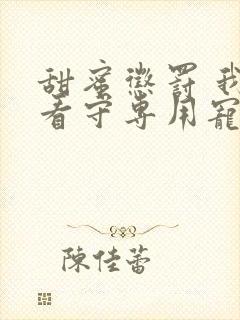 甜蜜懲罰 我
看守專用寵
陳佳蕾